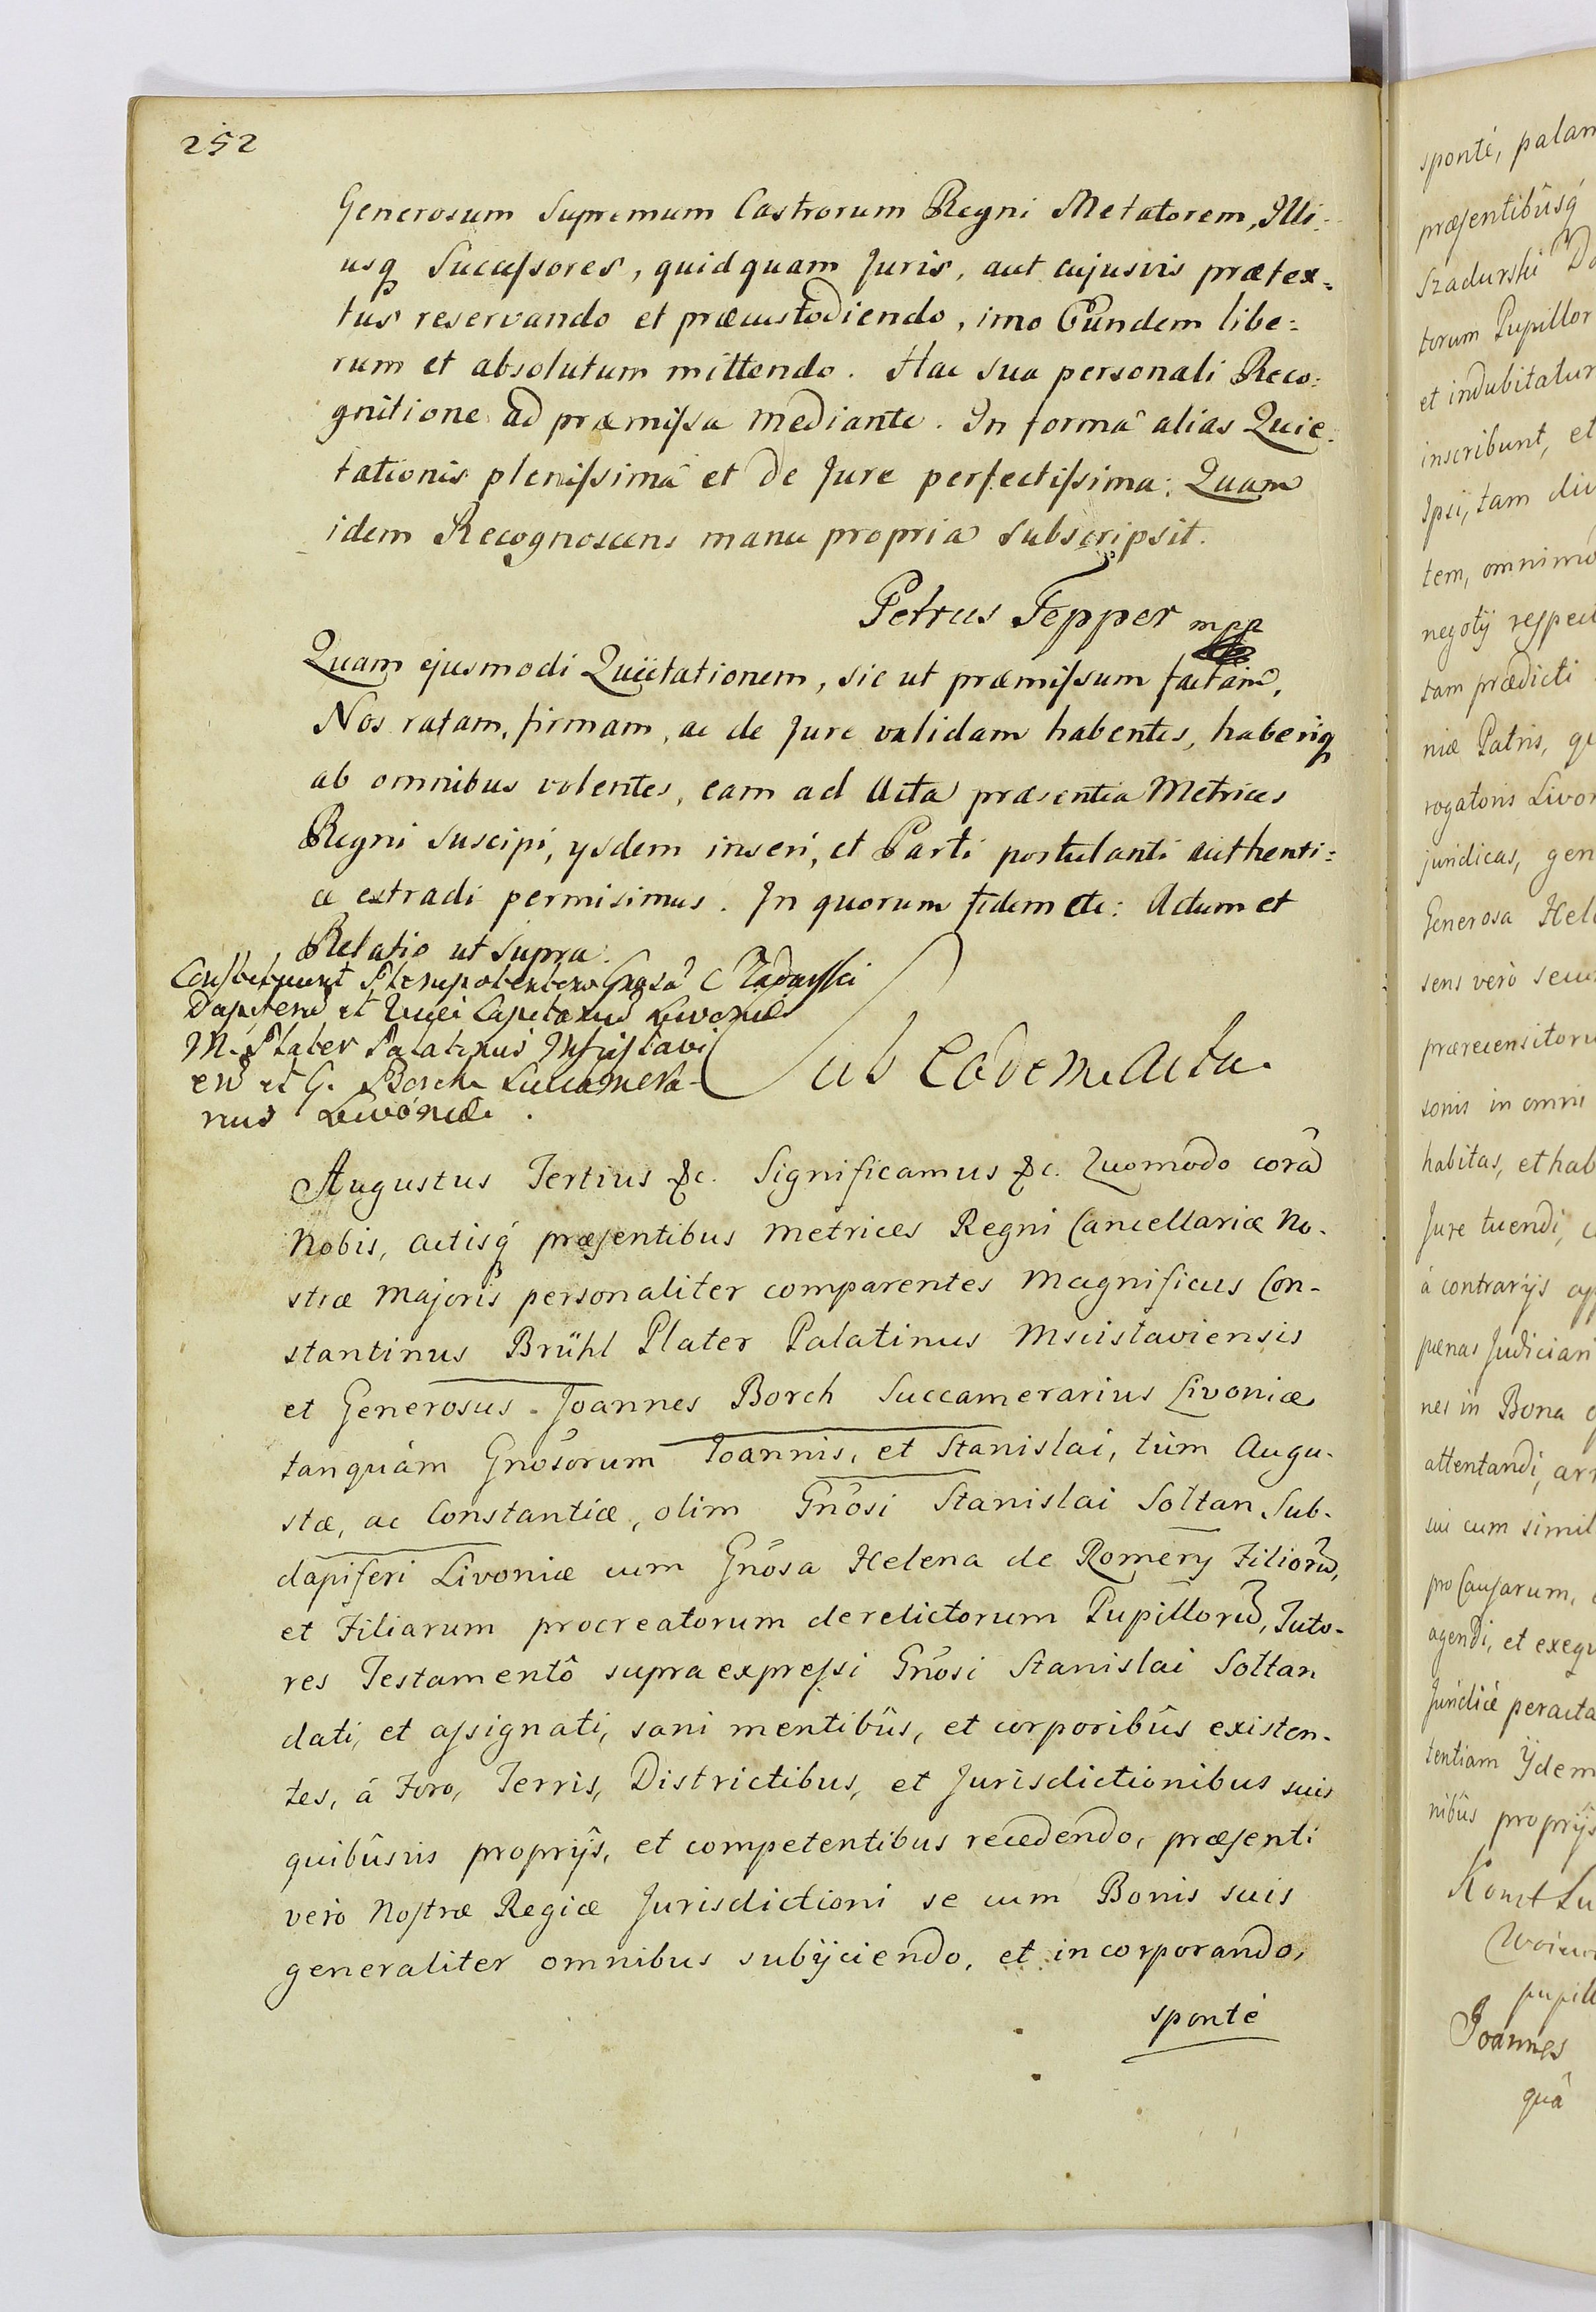 252
Generosum Supremum Castrorum Regni Metatorem, Illi:
usq Succeſsores, quidquam Juris, aut cujusvis prætex=
tus reservando et præcustodiendo, imo Eundem libe=
rum et absolutum mittendo. Hac sua personali Reco:
gnitione ad præmiſsa mediante. In formâ alias Quie:
tationis pleniſsimâ et de Jure perfectiſsima: Quam
idem Recognoscens manu propria subscripsit.
Petrus Tepper mpp
Quam ejusmodi Quietationem, sic ut præmiſsum factam,
Nos ratam, firmam, ac de Jure validam habentes, haberiq
ab omnibus volentes, eam ad Acta præsentia Metrices
Regni suscipi, ysdem inseri, et Parti postulanti authenti=
ce extradi permisimus. In quorum fidem etc: Actum et
Relatio ut supra.
Constituunt Plenipotentem Gnosû C
Dapiferû et Capitaneû Livoniæ
M. Plater Palatinus Mscislavi
en et G. Borch Succamera-
rius Livoniæ.
Sub Eodem Actu.
Augustus Tertius &c. Significamus &c. Quomodo corã
Nobis, actisq́ præſentibus Metrices Regni Cancellariæ No-
stræ Majoris personaliter comparentes Magnificus Con-
stantinus Brühl Plater Palatinus Mscislaviensis
et Generosus Joannes Borch Succamerarius Livoniæ
tanquàm Gnosorum Joannis, et Stanislai, tùm Augu-
stæ, ac Constantiæ, olim Gnosi Stanislai Sołtan Sub-
dapiferi Livoniæ cum Gnosa Helena de Romery Filiorũ,
et Filiarum procreatorum derelictorum Pupillorũ, Tuto-
res Testamentô supra expreſsi Gnosi Stanislai Sołtan
dati, et aſsignati, sani mentibûs, et corporibûs existen-
tes, à Foro, Terris, Districtibus, et Jurisdictionibus suis
quibûsvis proprijs, et competentibus recedendo, præſenti
verò Noſtræ Regiæ Jurisdictioni se cum Bonis suis
generaliter omnibus subijciendo, et incorporando,
sponté
sponté, palam
præſentibûsq́
Szadurski
torum Pupillor
et indubitatum
inscribunt, et
Ipsi, tam div
tem, omnimo
negotÿ respect
tam prædicti
niæ Patris, qu
rogatoris Livon
juridicas, gen
Generosa Hele
sens verò secu
prærecensitoru
sonis in omni
habitas, et hab
Jure tuendi, c
à contrarÿs
pœnas Judiciari
nes in Bona
attentandi, arr
sui cum simil
pro Cauſarum,
agendi, et exequ
Juridicè peracta
tentiam Ÿdem
nibûs proprÿs
Konst Lu
pupill
Joannes
quâ